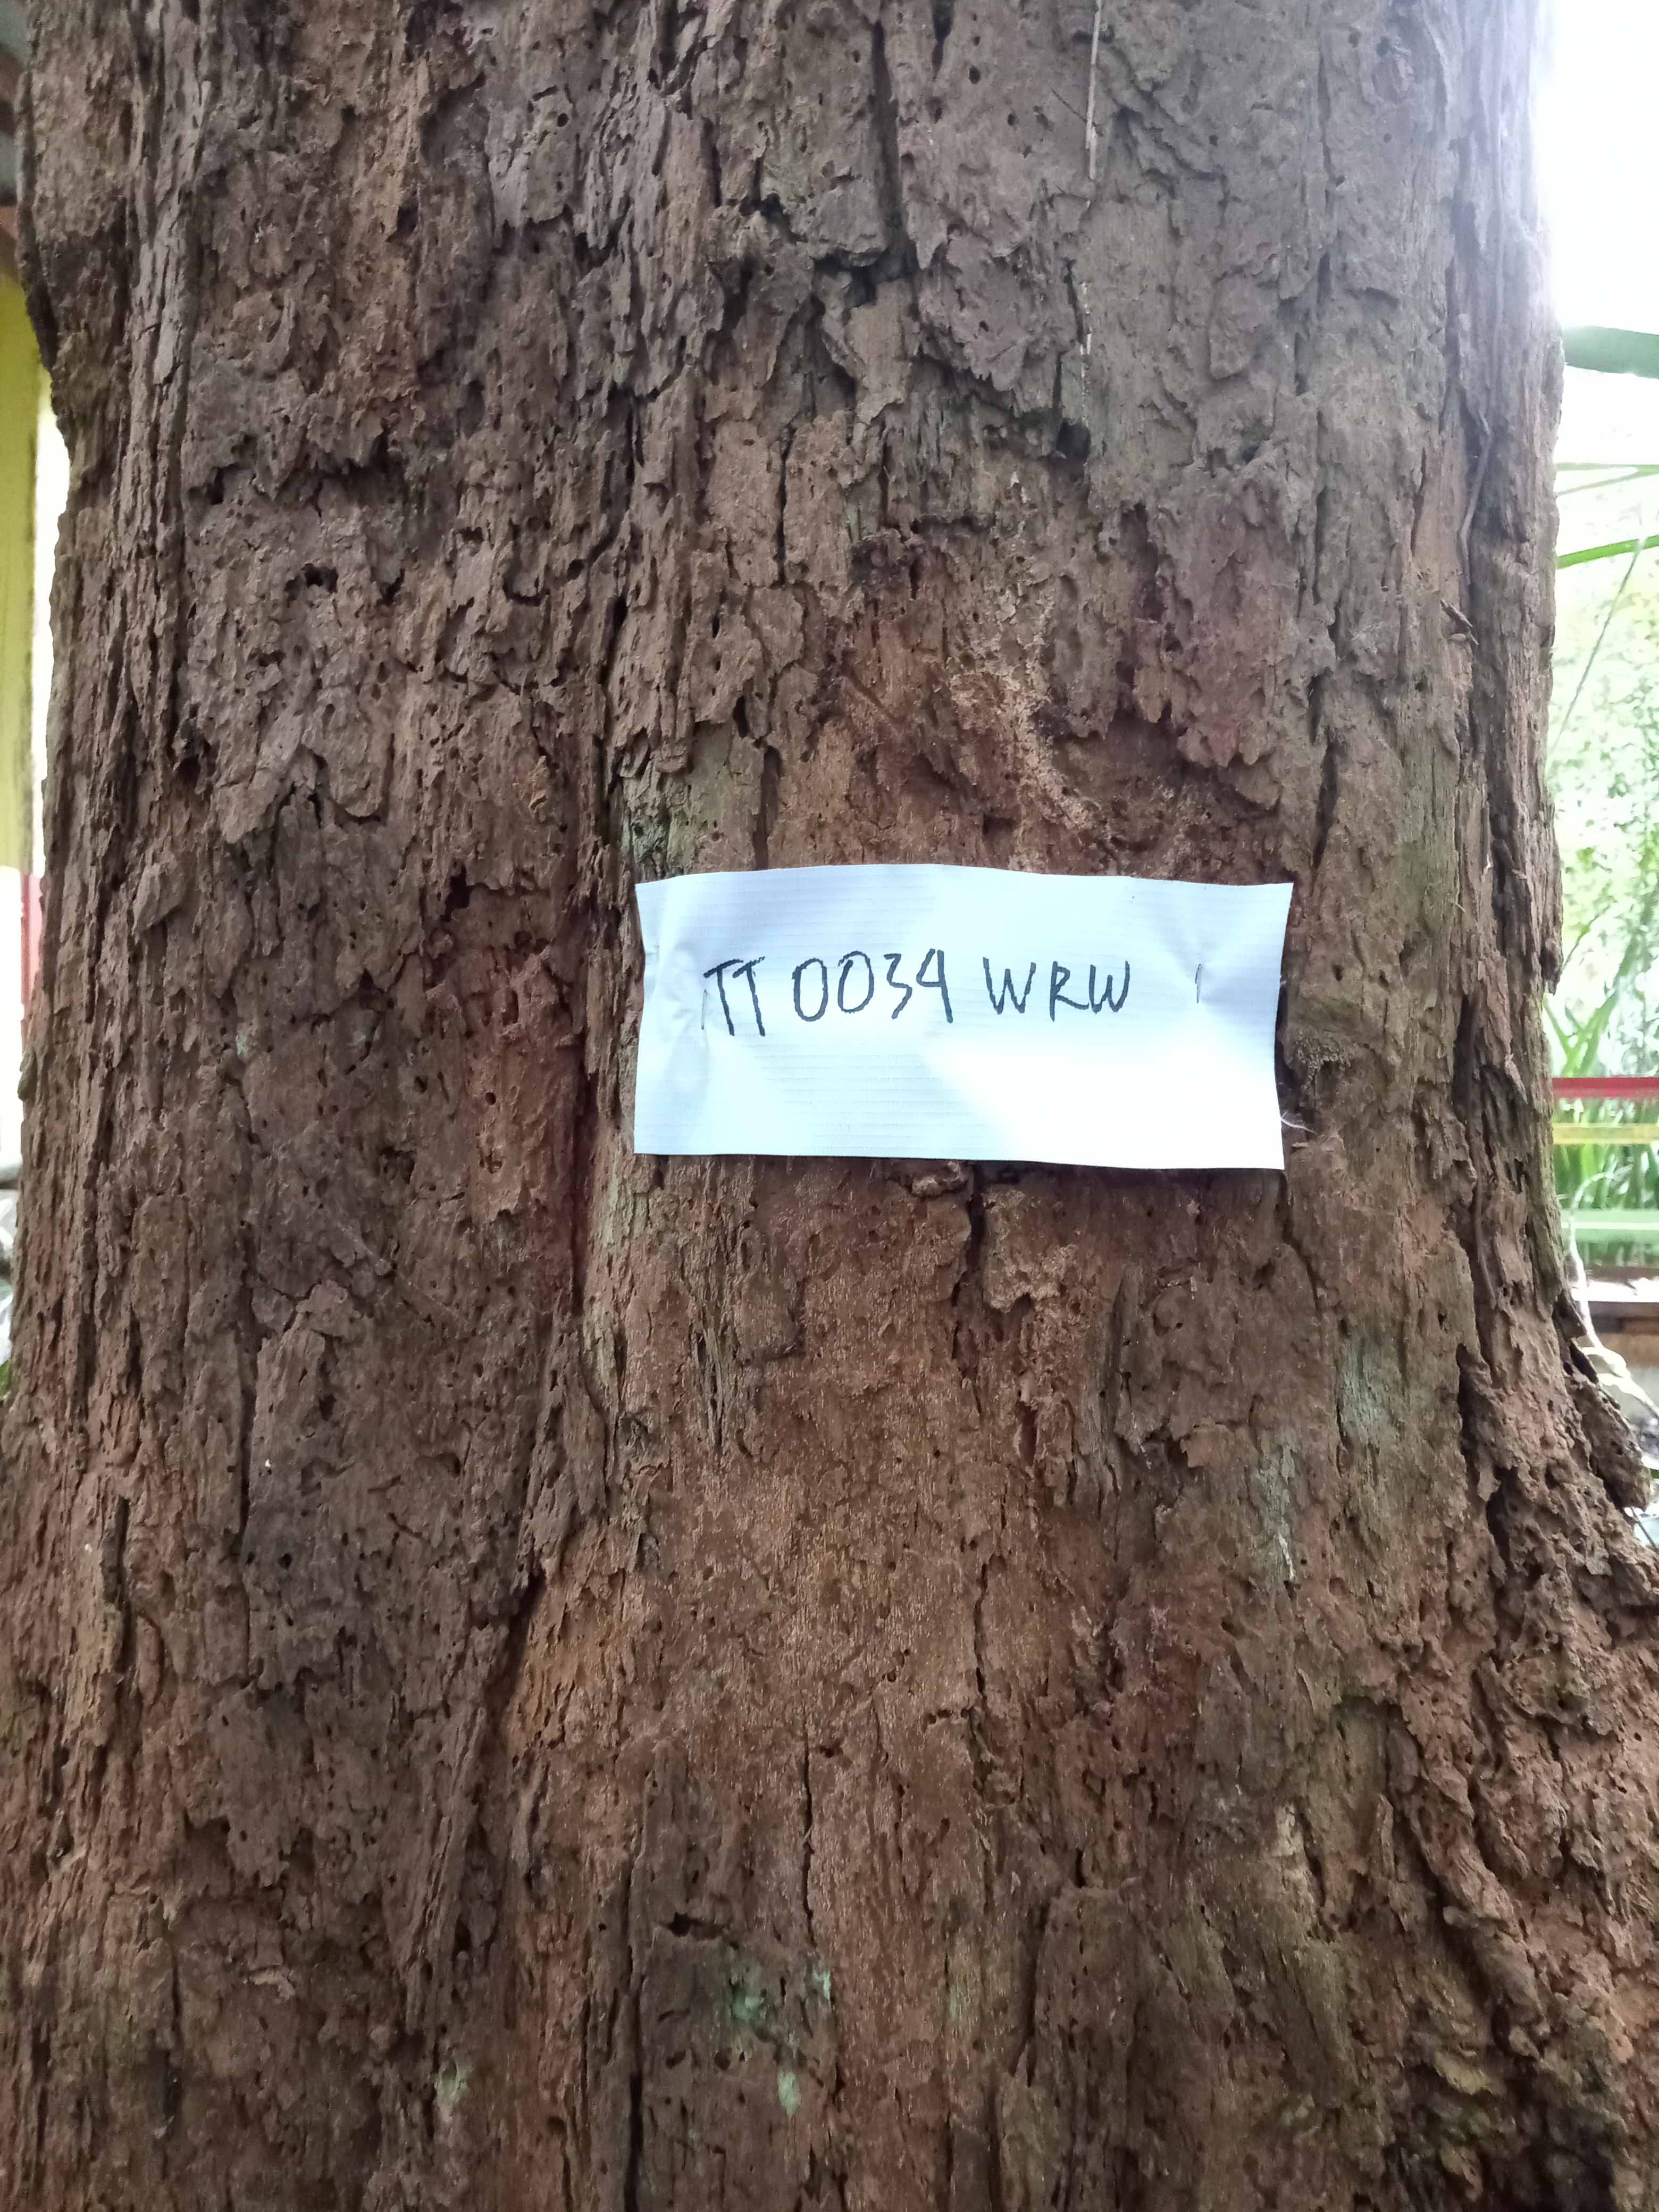 TT 0034 WRW